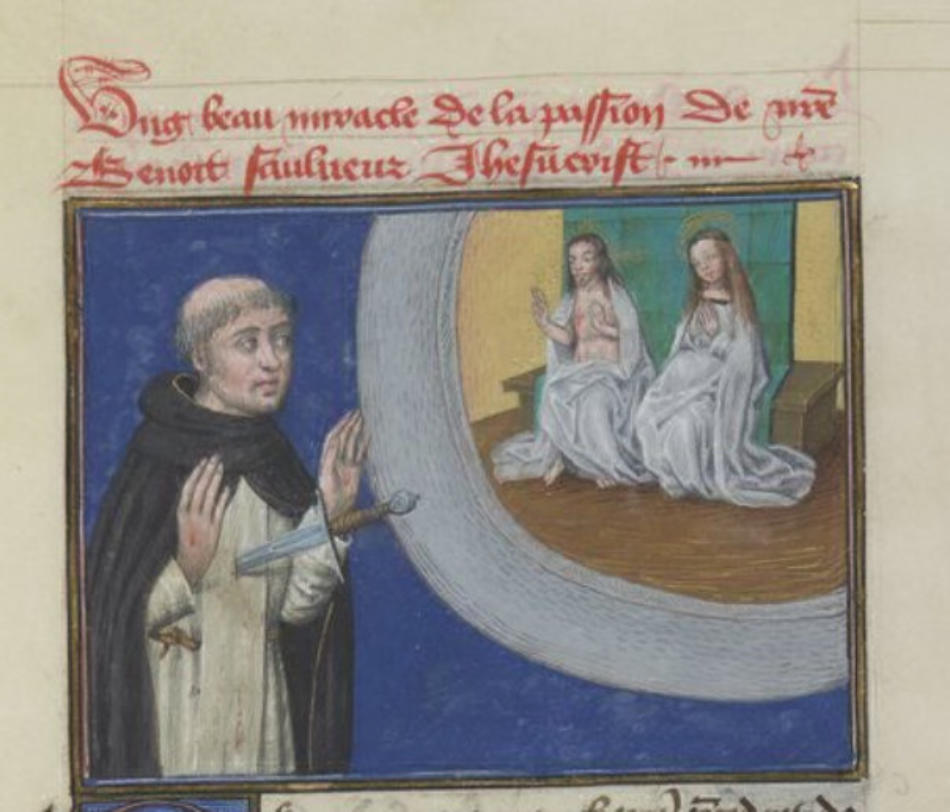 Ung beau miracle de la passion de nr̄e
Benoit saulueur Jhesucrist